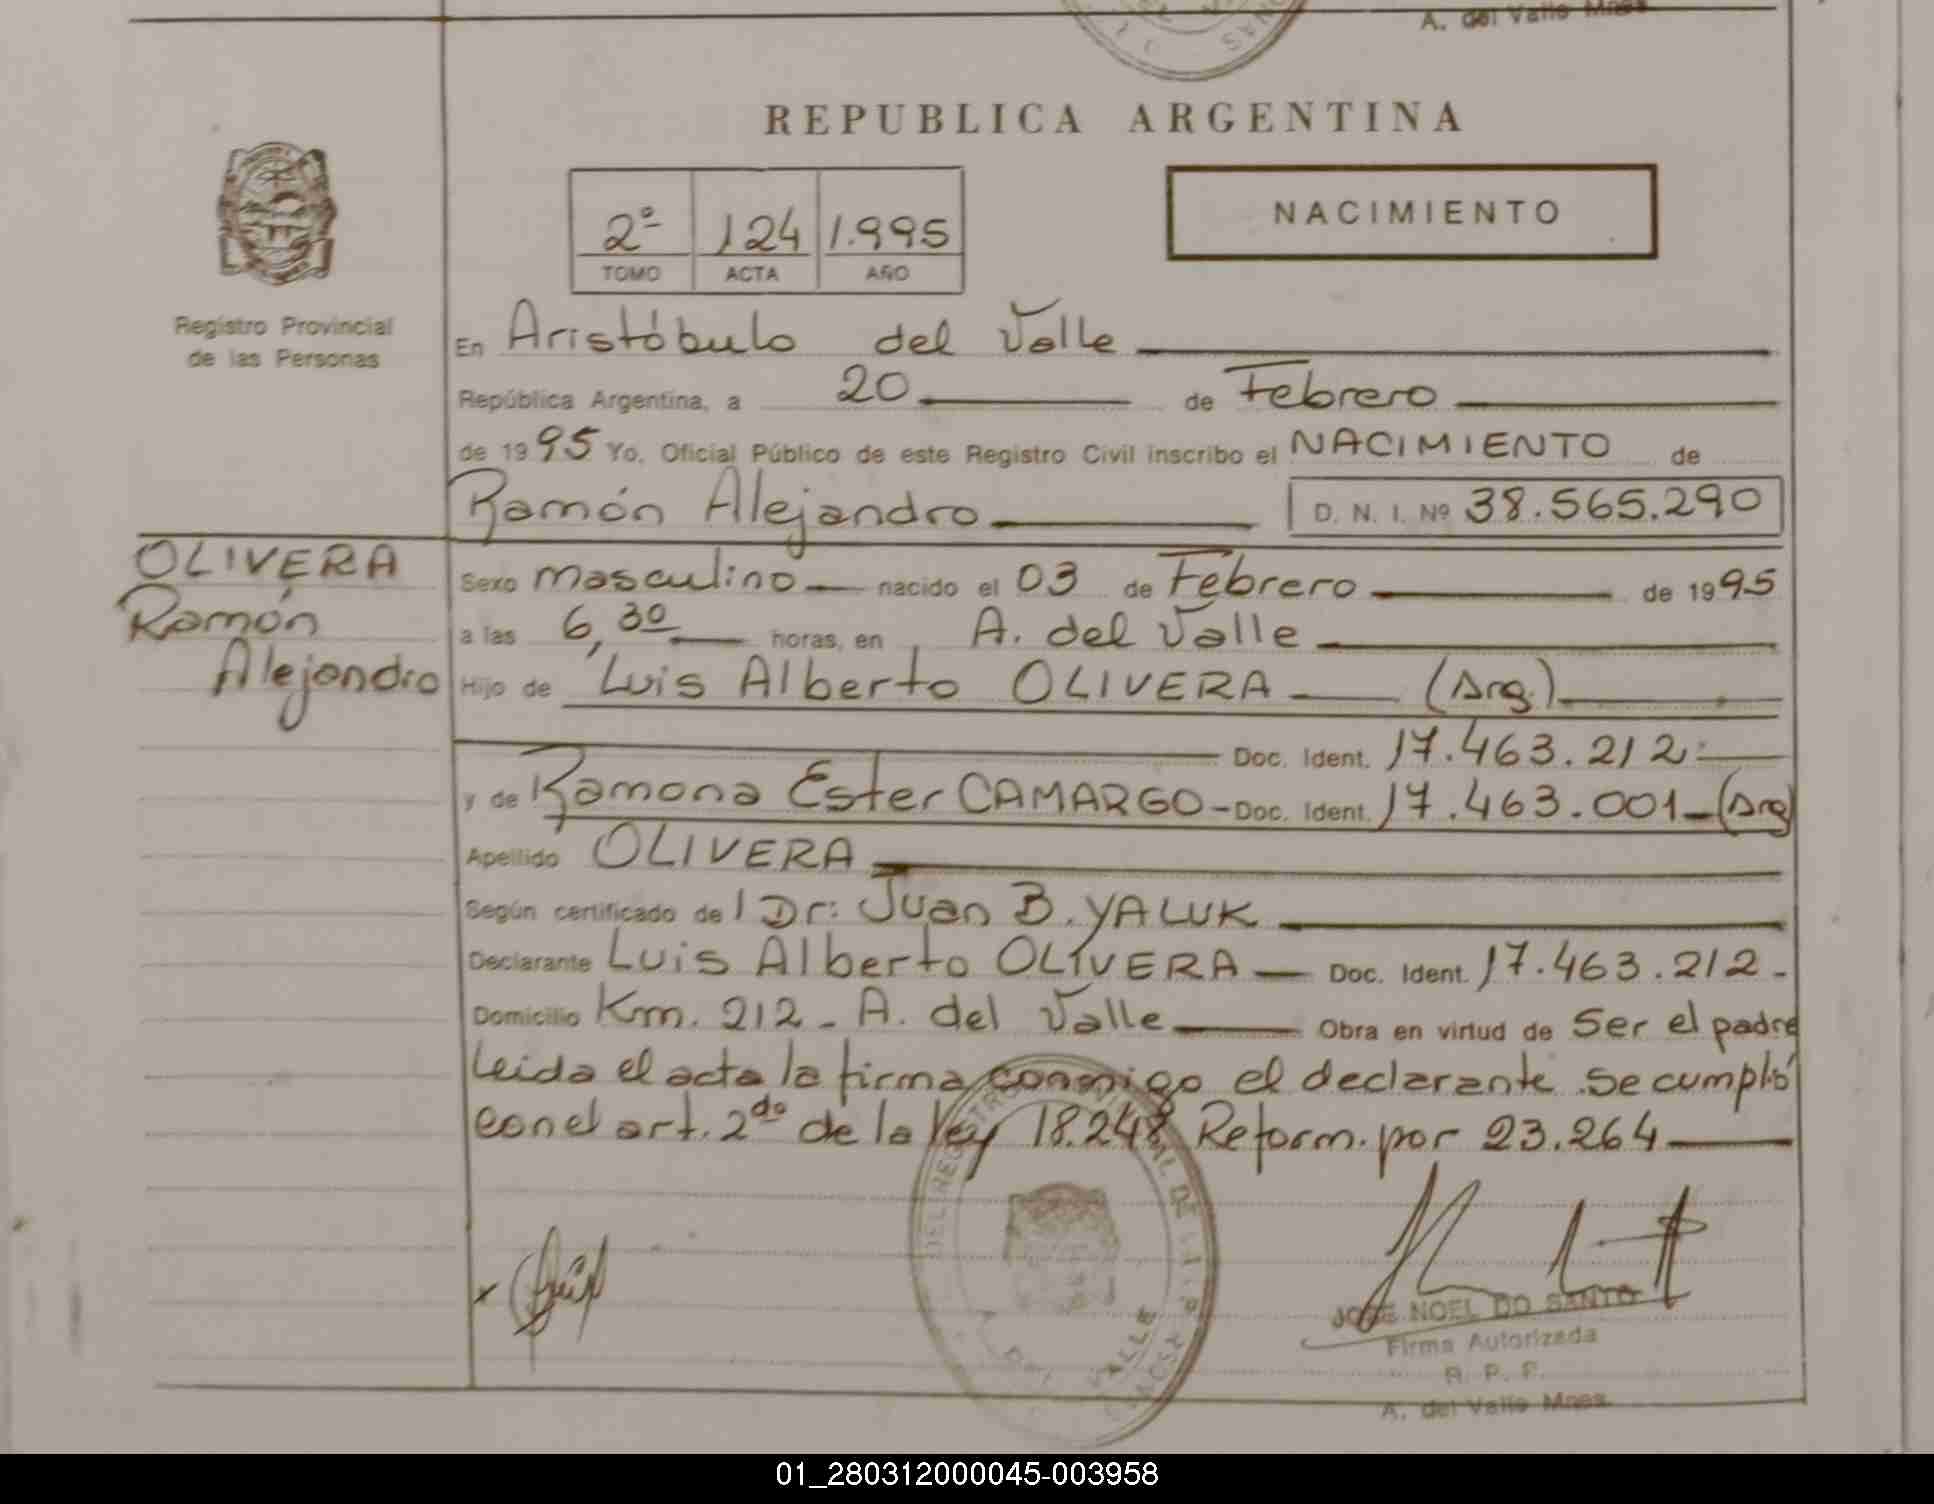 A. del Valle Mnes.
REPUBLICA ARGENTINA
2º 124 1.995
TOMO ACTA AÑO
NACIMIENTO
Registro Provincial
de las Personas
En Aristóbulo del Valle
República Argentina, a 20 de Febrero
de 1995 Yo, Oficial Público de este Registro Civil inscribo el NACIMIENTO de
Ramón Alejandro D. N. I. Nº 38.565.290
OLIVERA
Ramón
Alejandro
Sexo masculino nacido el 03 de Febrero de 1995
a las 6,30 horas, en A. del Valle
Hijo de Luis Alberto OLIVERA (Arg.)
Doc. Ident. 17.463.212
y de Ramona Ester CAMARGO - Doc. Ident. 17.463.001 - (Arg)
Apellido OLIVERA
Según certificado de l Dr: Juan B. YALUK
Declarante Luis Alberto OLIVERA - Doc. Ident. 17.463.212 -
Domicilio Km. 212 - A. del Valle Obra en virtud de Ser el padre
Leida el acta la firma conmigo el declarante. Se cumplió
con el art. 2do de la ley 18.248 Reform. por 23.264
VALLE
JOSE NOEL DO SANTO
Firma Autorizada
R. P. P.
A. del Valle Mnes.
01_280312000045-003958